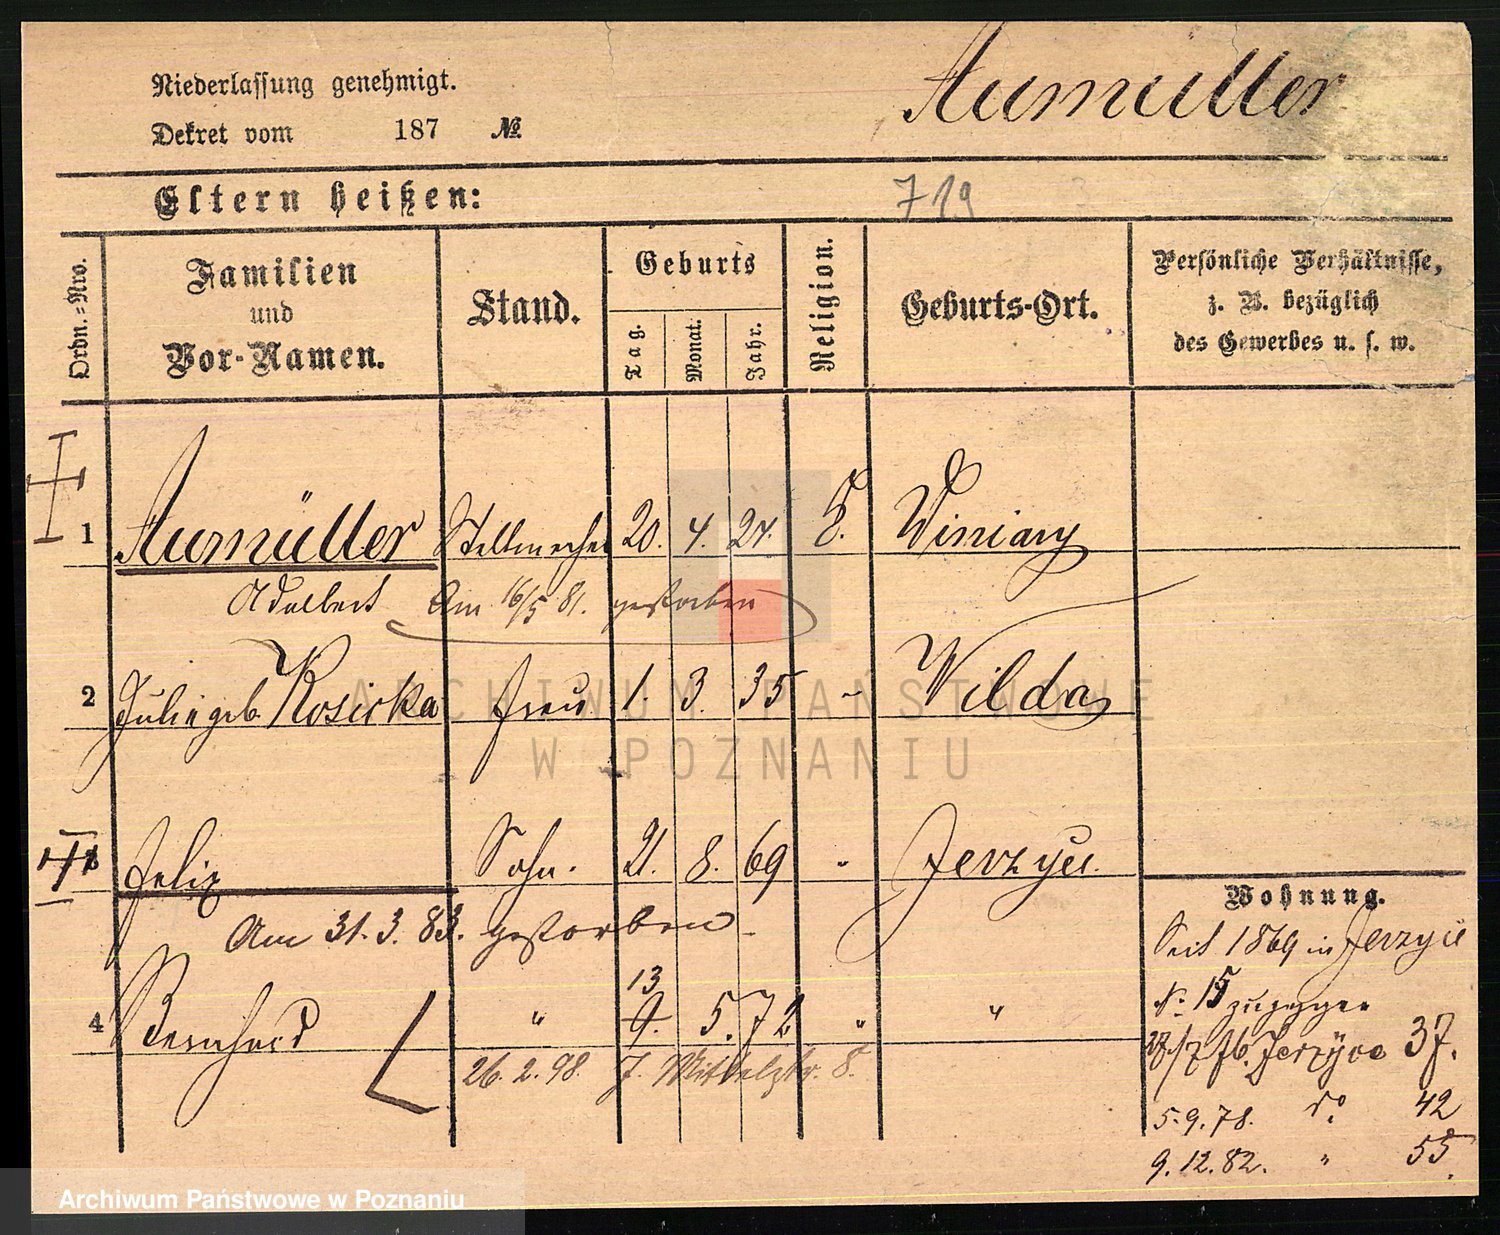 Aumüller
Niederlassung genehmigt.
Dekret vom 187 №
Eltern heißen:
719
Ordn.-Nro.
Familien
und
Vor-Namen.
Stand.
Geburts
Tag.
Monat.
Jahr.
Religion.
Geburts-Ort.
Persönliche Verhältnisse,
z. B. bezüglich
des Gewerbes u. s. w.
1 Aumüller Stellmacher 20. 4. 27. Winiary
Adalbert Am 16/5 81. gestorben
2 Julie geb. Kosicka Frau 1. 3. 35 " Wilda
Felix Sohn. 21. 8. 69 " Jerzyce.
Am 31. 3. 83. gestorben
13
4 Bernhard " 9. 5. 72 " "
26. 2. 98. J. Mittelstr. 8.
Wohnung.
Seit 1869 in Jerzyce
No. 15 zugezogen
28/7 76. Jerzyce 37.
5.9.78. do. 42
9.12.82. " 55.
ARCHIWUM PAŃSTWOWE
W POZNANIU
Archiwum Państwowe w Poznaniu